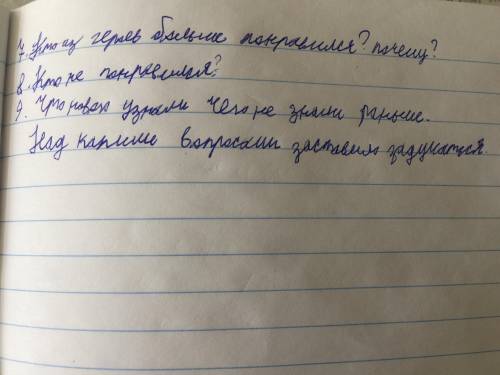 7. Кто из героев больше понравился? почему?
8. Кто не понравился?
9. Что нового узнали чего не знали раньше.
Над какими вопросами заставила задуматься.